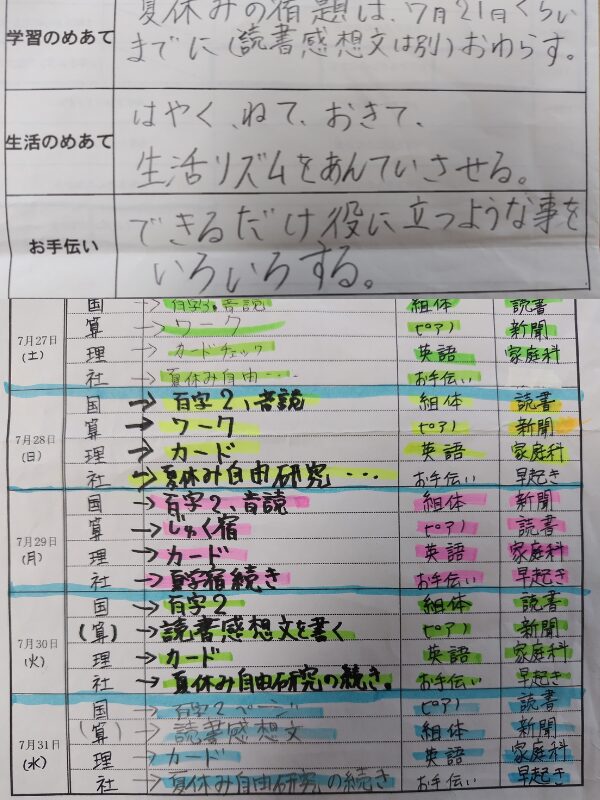 学習のめあて
夏休みの宿題は、7月21日くらい
までに(読書感想文は別)おわらす。
生活のめあて
はやく、ねて、おきて、
生活リズムをあんていさせる。
お手伝い
できるだけ役に立つような事を
いろいろする。
7月27日
(土)
国 → 百字3、音読 組体 読書
算 → ワーク ピアノ 新聞
理 → カードチェック 英語 家庭科
社 → 夏休み自由…・ お手伝い
7月28日
(日)
国 → 百字2、音読 組体 読書
算 → ワーク ピアノ 新聞
理 → カード 英語 家庭科
社 → 夏休み自由研究・・・ お手伝い 早起き
7月29日
(月)
国 → 百字2、音読 組体 新聞
算 → じゅく宿 ピアノ 読書
理 → カード 英語 家庭科
社 → 宿続き お手伝い 早起き
7月30日
(火)
国 → 百字2 組体 読書
(算) → 読書感想文を書く ピアノ 新聞
理 → カード 英語 家庭科
社 → 夏休み自由研究の続き。 お手伝い 早起き
7月31日
(水)
国 → 百字2ページ ピアノ 読書
(算) → 読書感想文 組体 新聞
理 → カード 英語 家庭科
社 → 夏休み自由研究の続き お手伝い 早起き